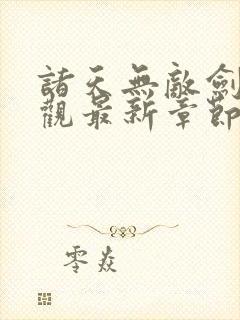 諸天無敵劍
觀最新章節
零焱